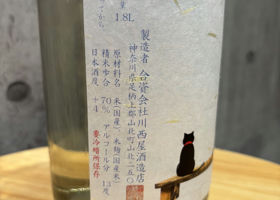 量 1.8L
てから
製造者 合資会社川西屋酒造店
神奈川県足柄上郡山北町山北一二五〇
原材料名 米(国産)、米麹(国産米)
精米歩合 70% アルコール分 13度
日本酒度 +4 要冷暗所保存